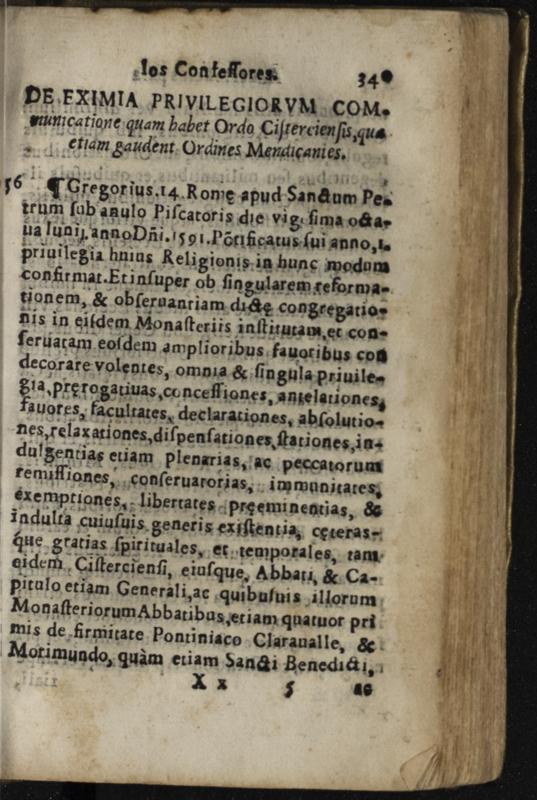 los Confeſſores. 34
DE EXIMIA PRIVILEGIORVM COM-
municatione quam habet Ordo Ciſtercienſis, qua
etiam gaudent Ordines Mendicantes.
56 ¶ Gregorius.14. Romę apud Sanctum Pe-
trum ſub anulo Piſcatoris die vigeſima octa-
ua Iunij. anno Dñi.1591. Põtificatus ſui anno,1.
priuilegia huius Religionis in hunc modum
confirmat. Et inſuper ob ſingularem reforma-
tionem, & obſeruantiam dictę congregatio-
nis in eiſdem Monaſteriis inſtitutam, et con-
ſeruatam eoſdem amplioribus fauoribus con
decorare volentes, omnia & ſingula priuile-
gia, pręrogatiuas, conceſſiones, antelationes,
fauores, facultates, declarationes, abſolutio-
nes, relaxationes, diſpenſationes, ſtationes, in-
dulgentias etiam plenarias, ac peccatorum
remiſſiones, conſeruatorias, immunitates,
exemptiones, libertates pręeminentias, &
indulta cuiuſuis generis exiſtentia, cęteraſ-
que gratias ſpirituales, et temporales, tam
eidem Ciſtercienſi, eiuſque, Abbati, & Ca-
pitulo etiam Generali, ac quibuſuis illorum
Monaſteriorum Abbatibus, etiam quatuor pri
mis de firmitate Pontiniaco Claraualle, &
Morimundo, quàm etiam Sancti Benedicti,
X x 5 ac